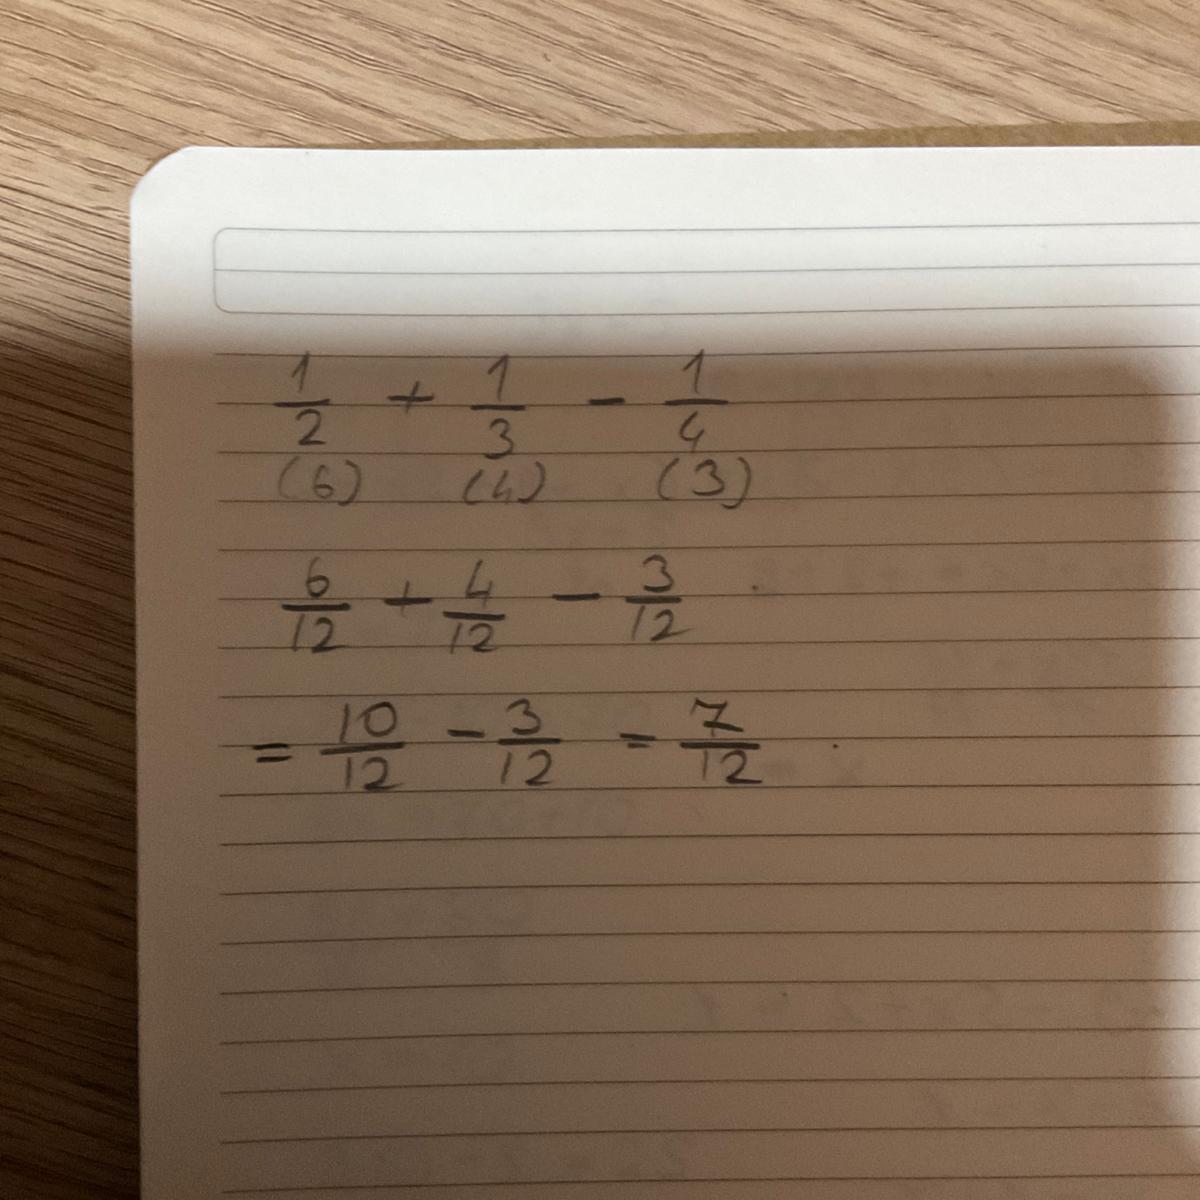 1/2 + 1/3 - 1/4
(6) (4) (3)
6/12 + 4/12 - 3/12
= 10/12 - 3/12 = 7/12